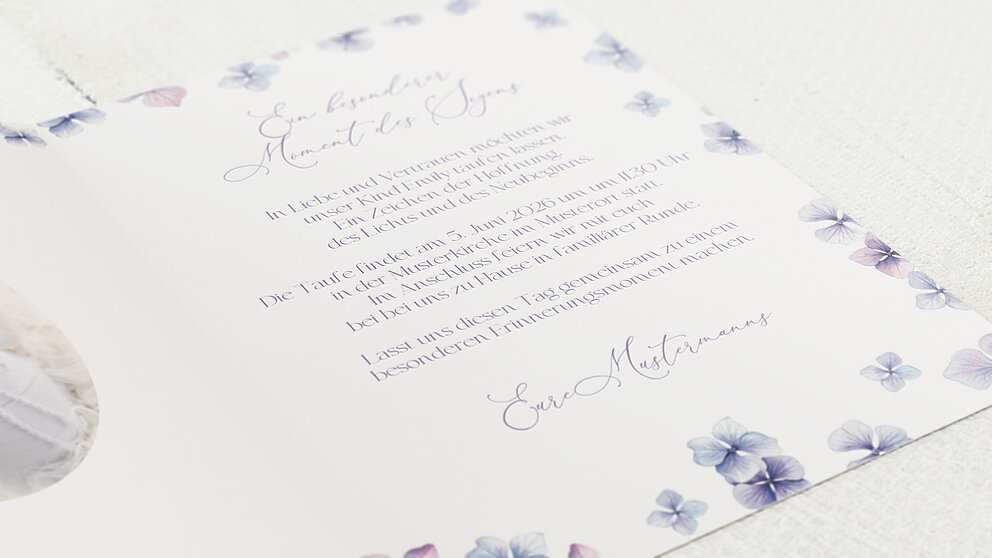 Ein besonderer
Moment des Segens
In Liebe und Vertrauen möchten wir
unser Kind Emily taufen lassen.
Ein Zeichen der Hoffnung,
des Lichts und des Neubeginns.
Die Taufe findet am 5. Juni 2026 um um 11.30 Uhr
in der Musterkirche im Musterort statt.
Im Anschluss feiern wir mit euch
bei bei uns zu Hause in familiärer Runde.
Lasst uns diesen Tag gemeinsam zu einem
besonderen Erinnerungsmoment machen.
Eure Mustermanns